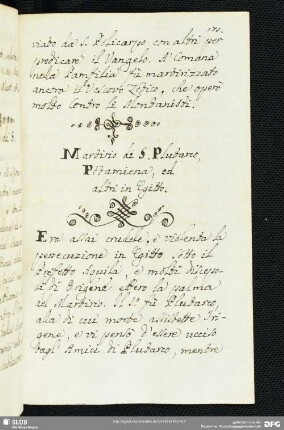 viato da S. Policarpo con altri per
predicare il Vangelo. A Comana
nela Pamfilia fù martirizzato
ancora il Vescovo Zotico, che operò
molto contro li Montanisti.
Martirio di S. Plutarco,
Potamiena, ed
altri in Egitto.
Era assai crudele, e violenta la
persecuzione in Egitto sotto il
Prefetto Aquila, e molti discepo-
li di Origene ebbero la palma
del Martirio. Il Iº fù Plutarco,
alla di cui morte assistette Ori-
gene, e vi pensò d'essere ucciso
dagl'Amici di Plutarco, mentre
SLUB
Wir führen Wissen.
DFG